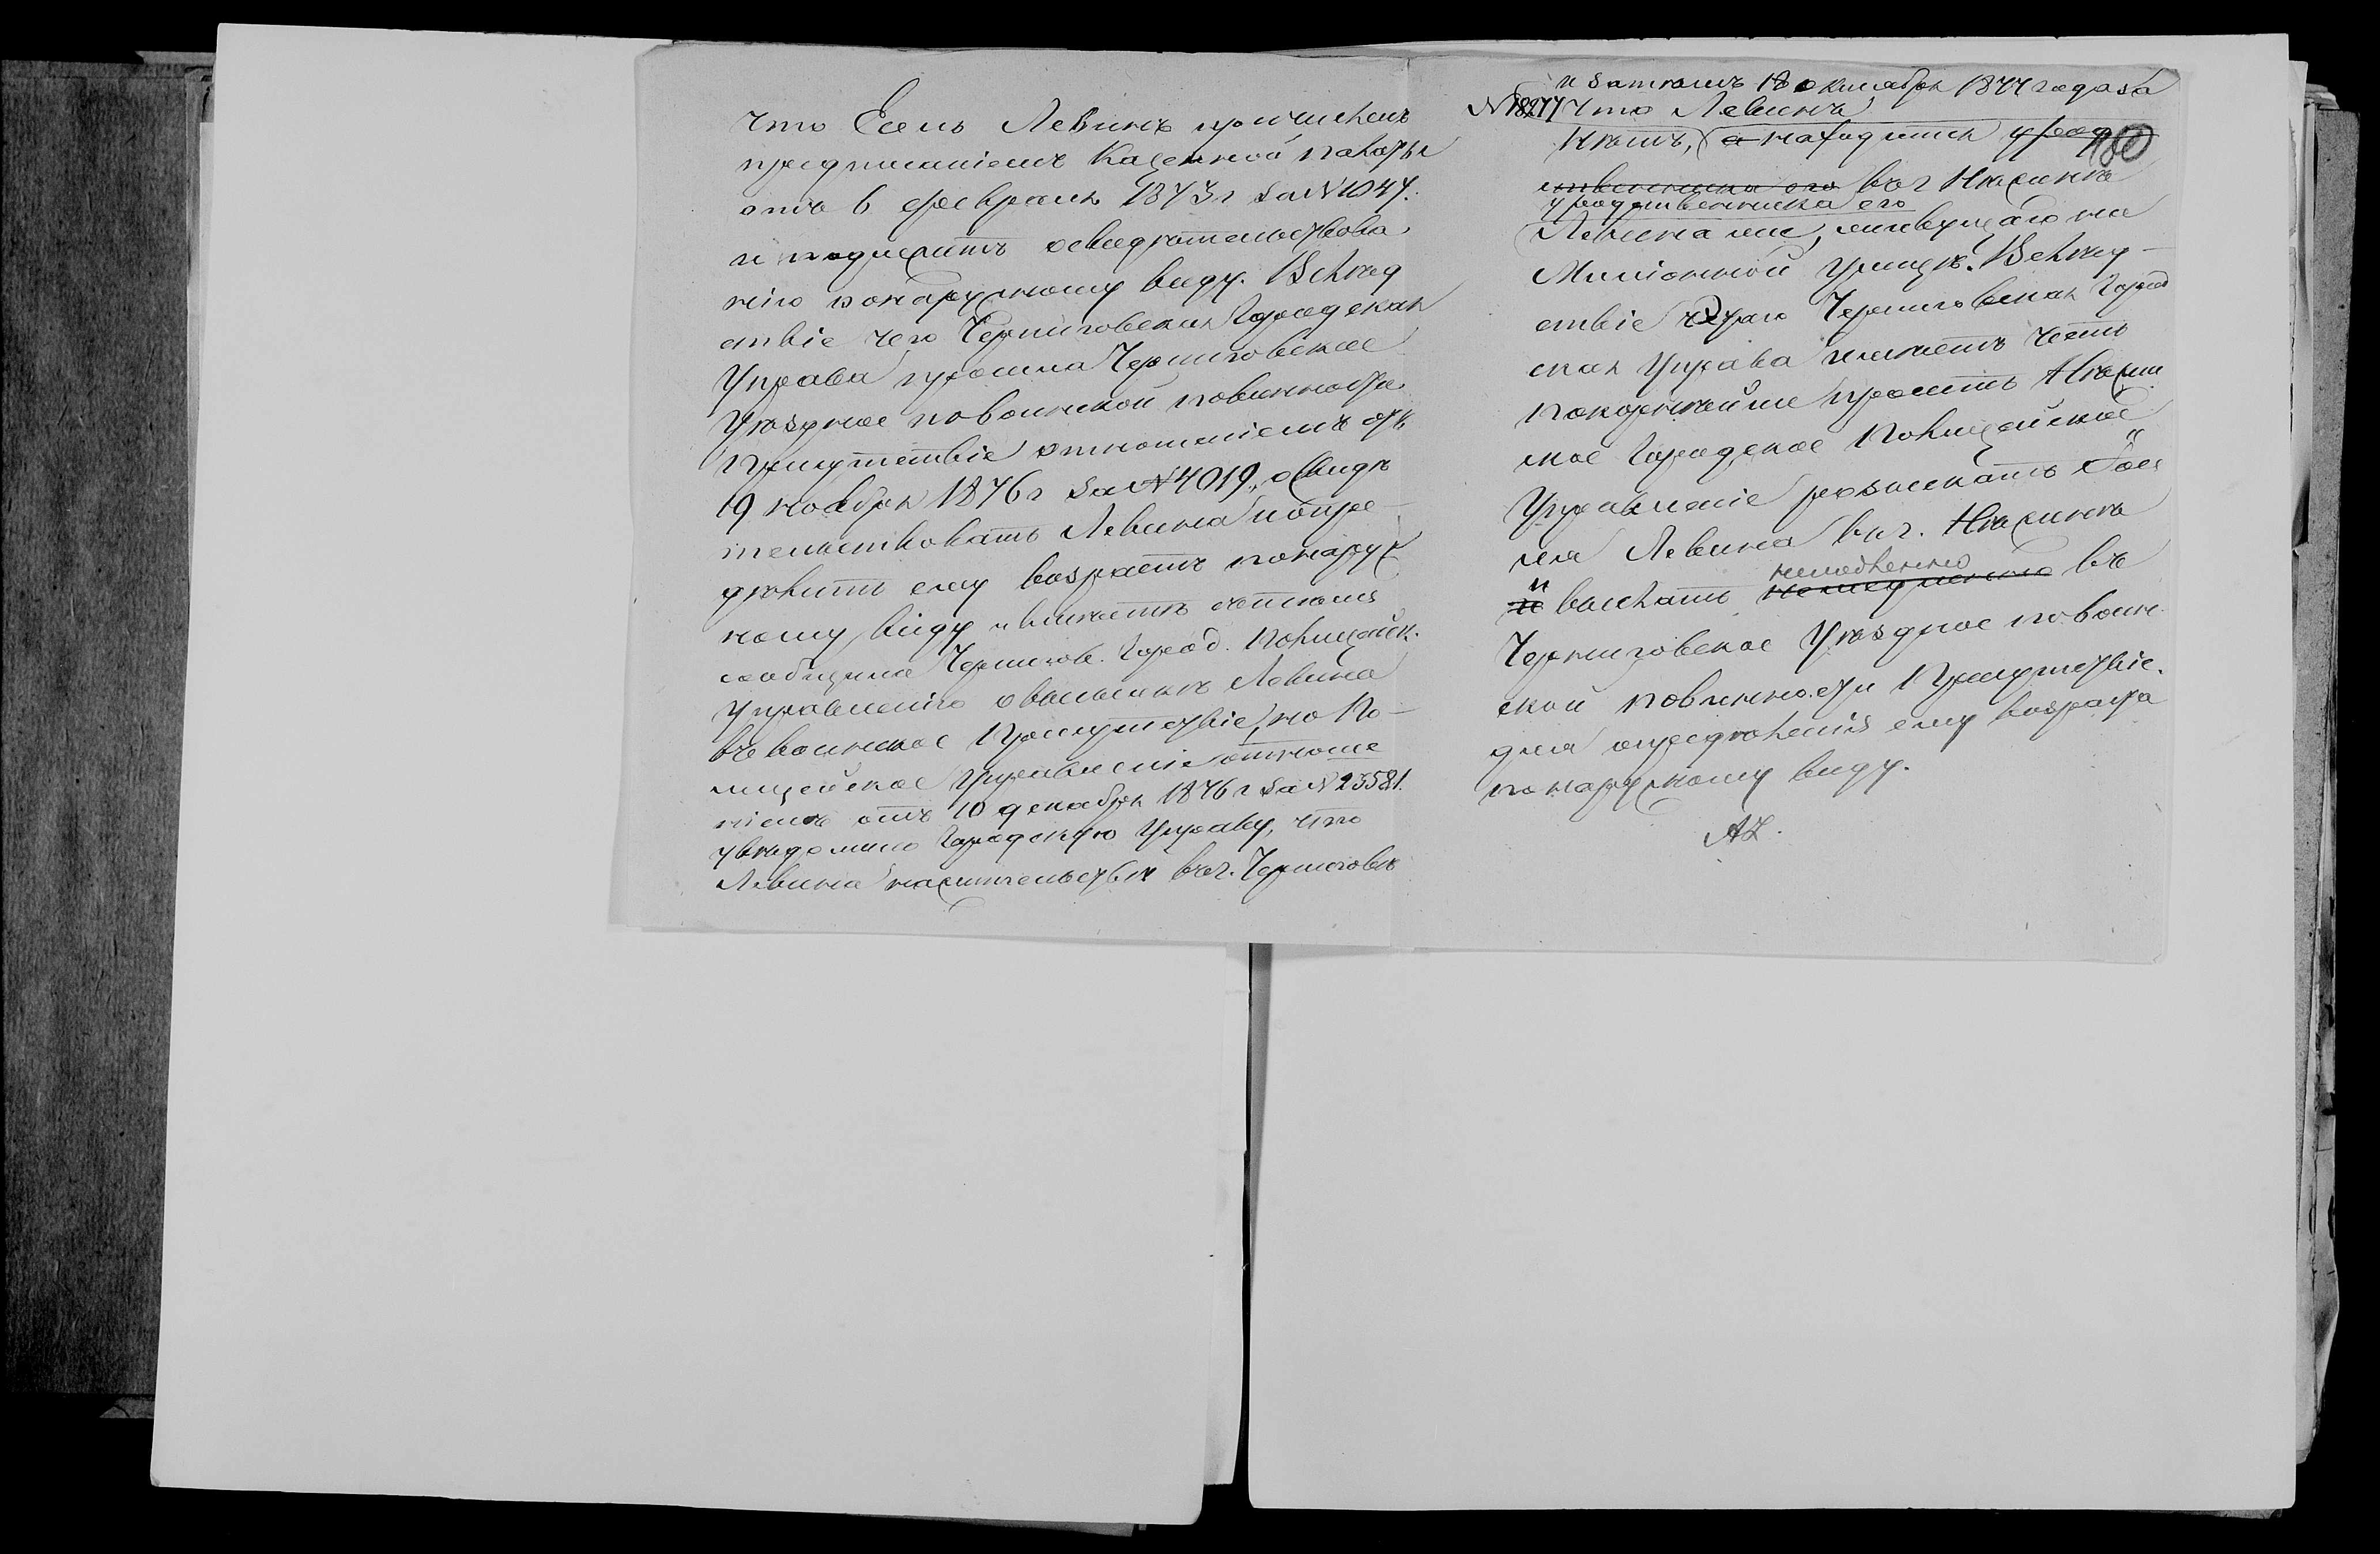 что Есель Левинъ причисленъ
предписаніемъ Казенной палаты
отъ 6 февраля 1873 г за № 1047.
и подлежитъ освидѣтельствова
нію по наружному виду. Вслѣд
ствіе чего Черниговская Городская
Управа просила Черниговское
Уѣздное по воинской повинности
Присутствіе отношеніемъ отъ
19 ноября 1876 г за № 4019, освидѣ
тельствовать Левина и опре-
дѣлить ему возрастъ по наруж
ному виду и вмѣстѣ съ тѣмъ
сообщила Чернигов. Город. Полицейск.
Управленію о высылкѣ Левина
въ воинское Присутствіе, но По-
лицейское Управленіе отноше
ніемъ отъ 10 декабря 1876 г за № 23581.
увѣдомило Городскую Управу, что
Левина на жительствѣ въ г. Черниговѣ
и затѣмъ 18 октября 1877 года за
№ 18277 что Левинъ
нѣтъ, а находится у род
180
ственника его въ г Нѣжинѣ
у родственника его
Левина же, живущаго на
Миліонной улицѣ. Вслѣд-
ствіе чего Черниговская Город
ская Управа имѣетъ честь
покорнѣйше просить Нѣжин
ское Городское Полицейское
Управленіе розыскать Іосе
ля Левина въ г. Нѣжинѣ
и
и выслать немедленно въ
немедленно
Черниговское Уѣздное по воин
ской повинности Присутствіе.
для опредѣленія ему возраста
по наружному виду.